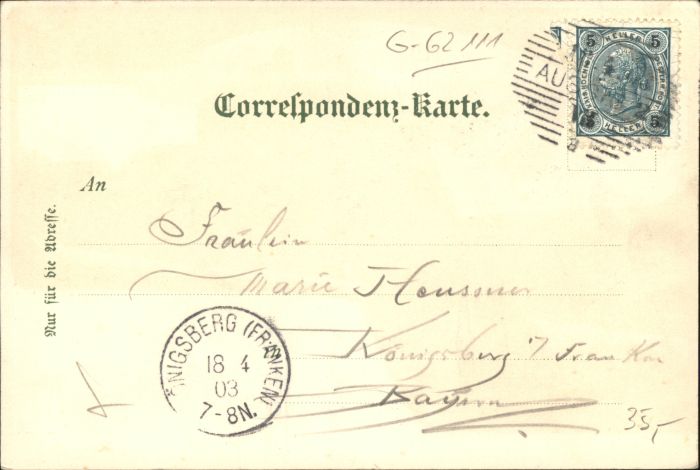 G-62111
5 HELLER 5
AU
5 HELLER 5
Correſpondenz-Karte.
An
Nur für die Adreſſe.
Fräulein
Marie Heussner
Königsberg i/ Franken
Bayern
NIGSBERG (FRANKEN)
18 4
03
7-8N.
35,-